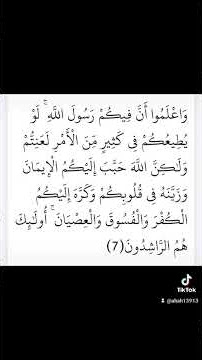 وَاعْلَمُوا أَنَّ فِيكُمْ رَسُولَ اللَّهِ ۚ لَوْ
يُطِيعُكُمْ فِي كَثِيرٍ مِّنَ الْأَمْرِ لَعَنِتُّمْ
وَلَٰكِنَّ اللَّهَ حَبَّبَ إِلَيْكُمُ الْإِيمَانَ
وَزَيَّنَهُ فِي قُلُوبِكُمْ وَكَرَّهَ إِلَيْكُمُ
الْكُفْرَ وَالْفُسُوقَ وَالْعِصْيَانَ ۚ أُولَٰئِكَ
هُمُ الرَّاشِدُونَ (7)
TikTok